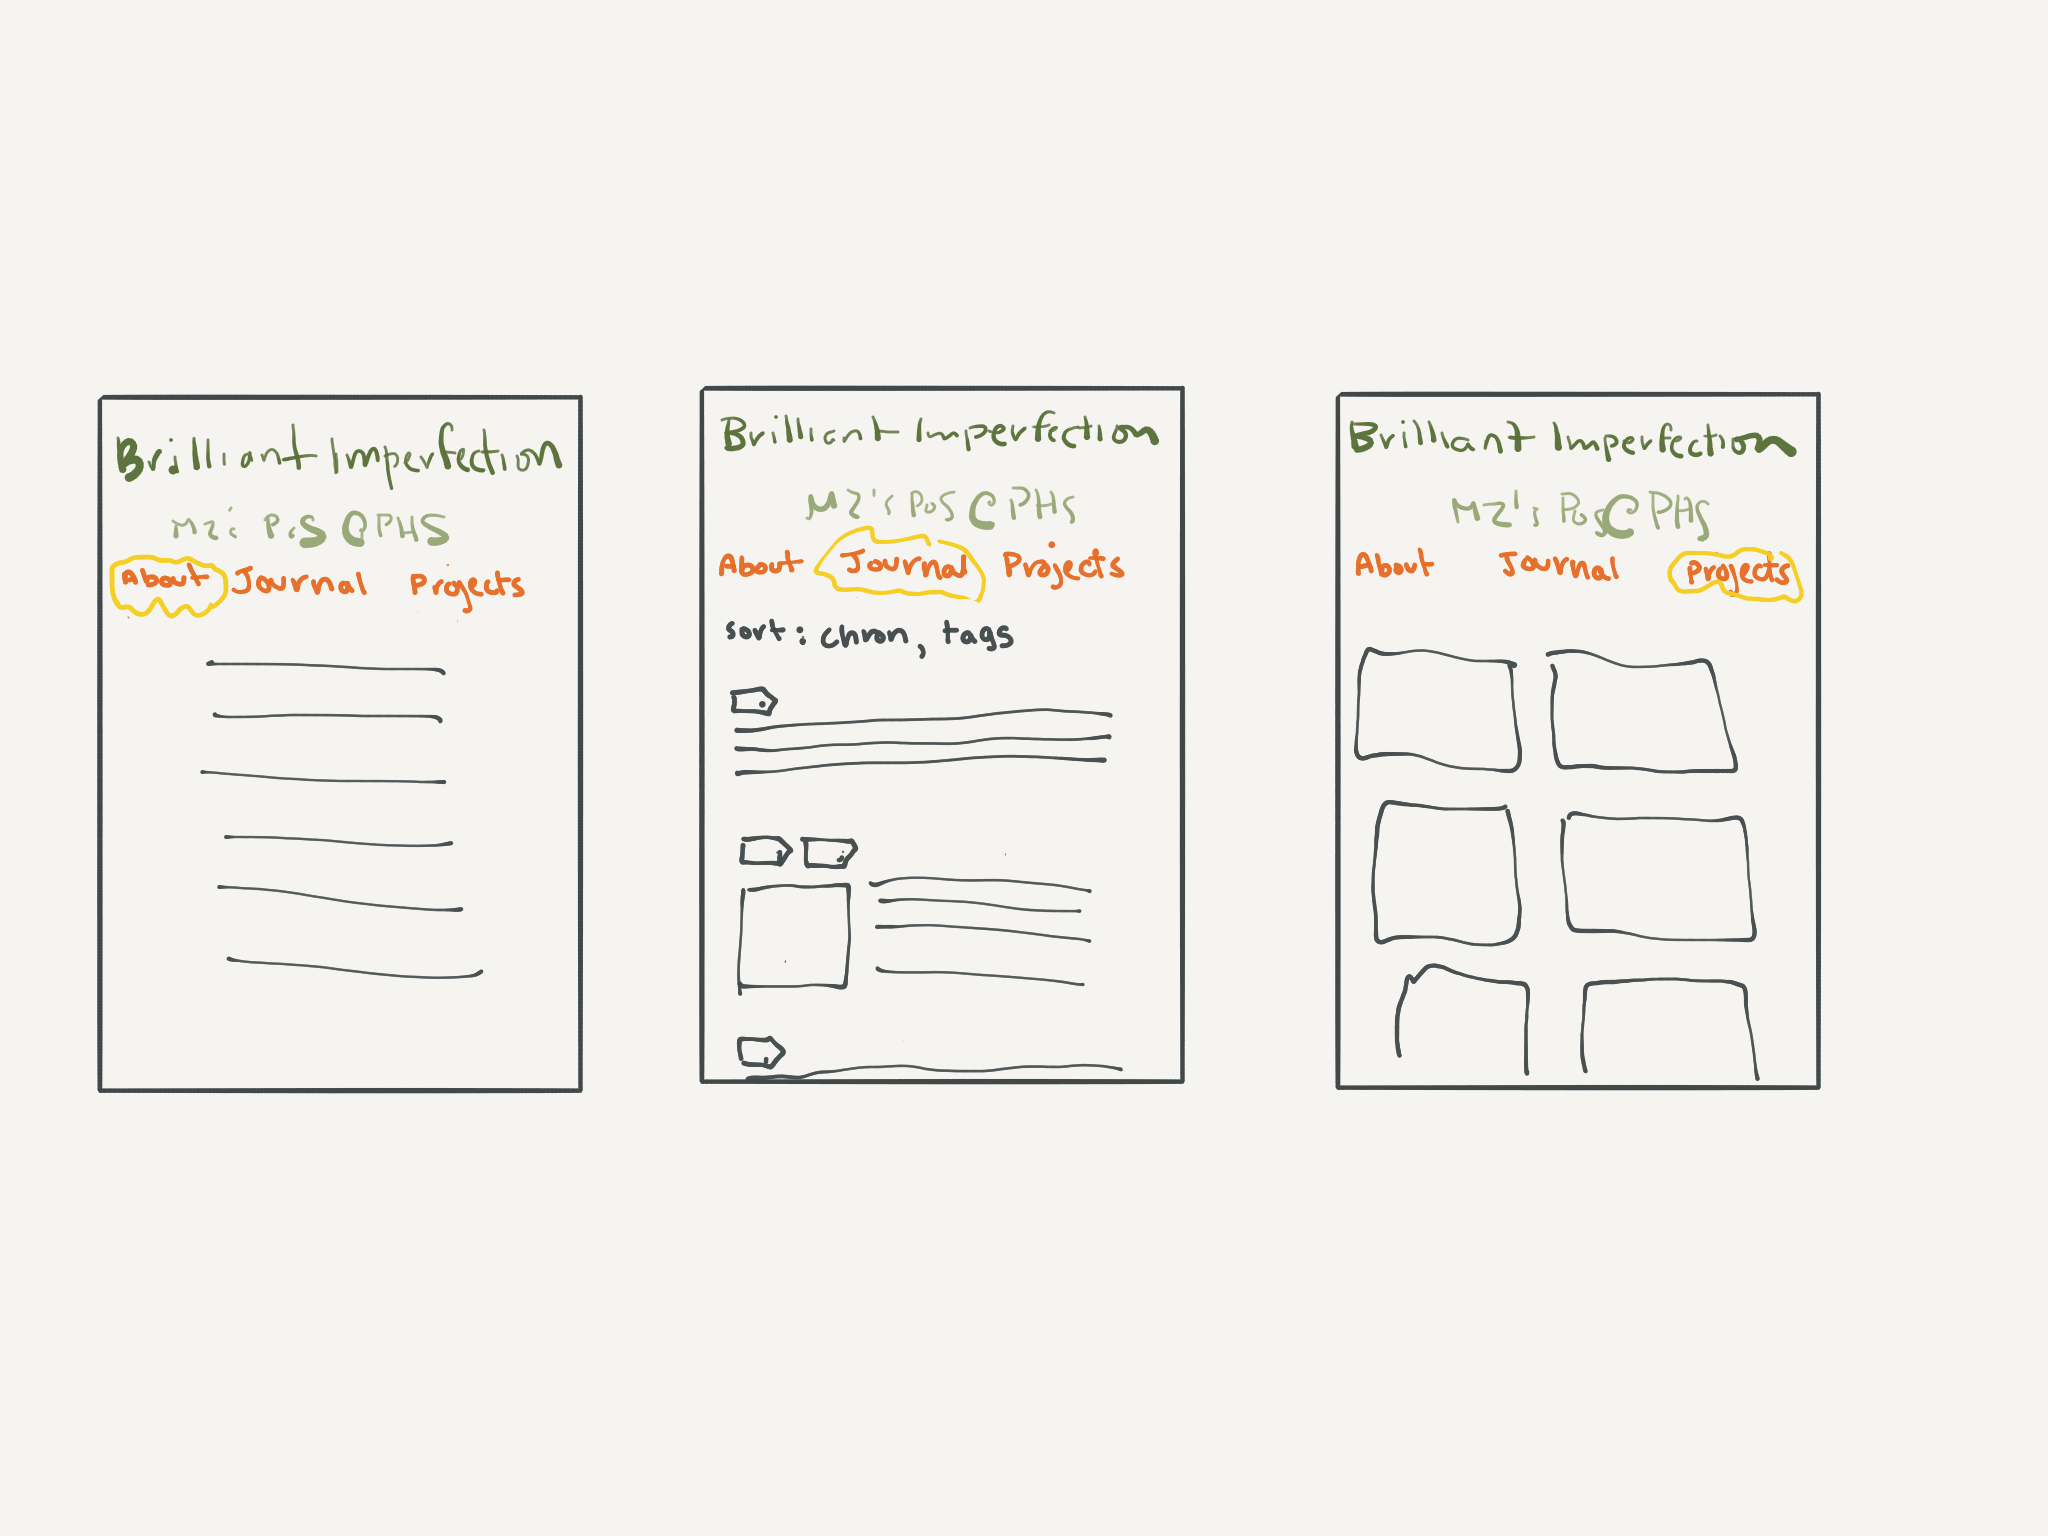 Brilliant Imperfection
MZ's PoS @ PHS
About Journal Projects
Brilliant Imperfection
MZ's PoS @ PHS
About Journal Projects
sort: chron, tags
Brilliant Imperfection
MZ's PoS @ PHS
About Journal Projects